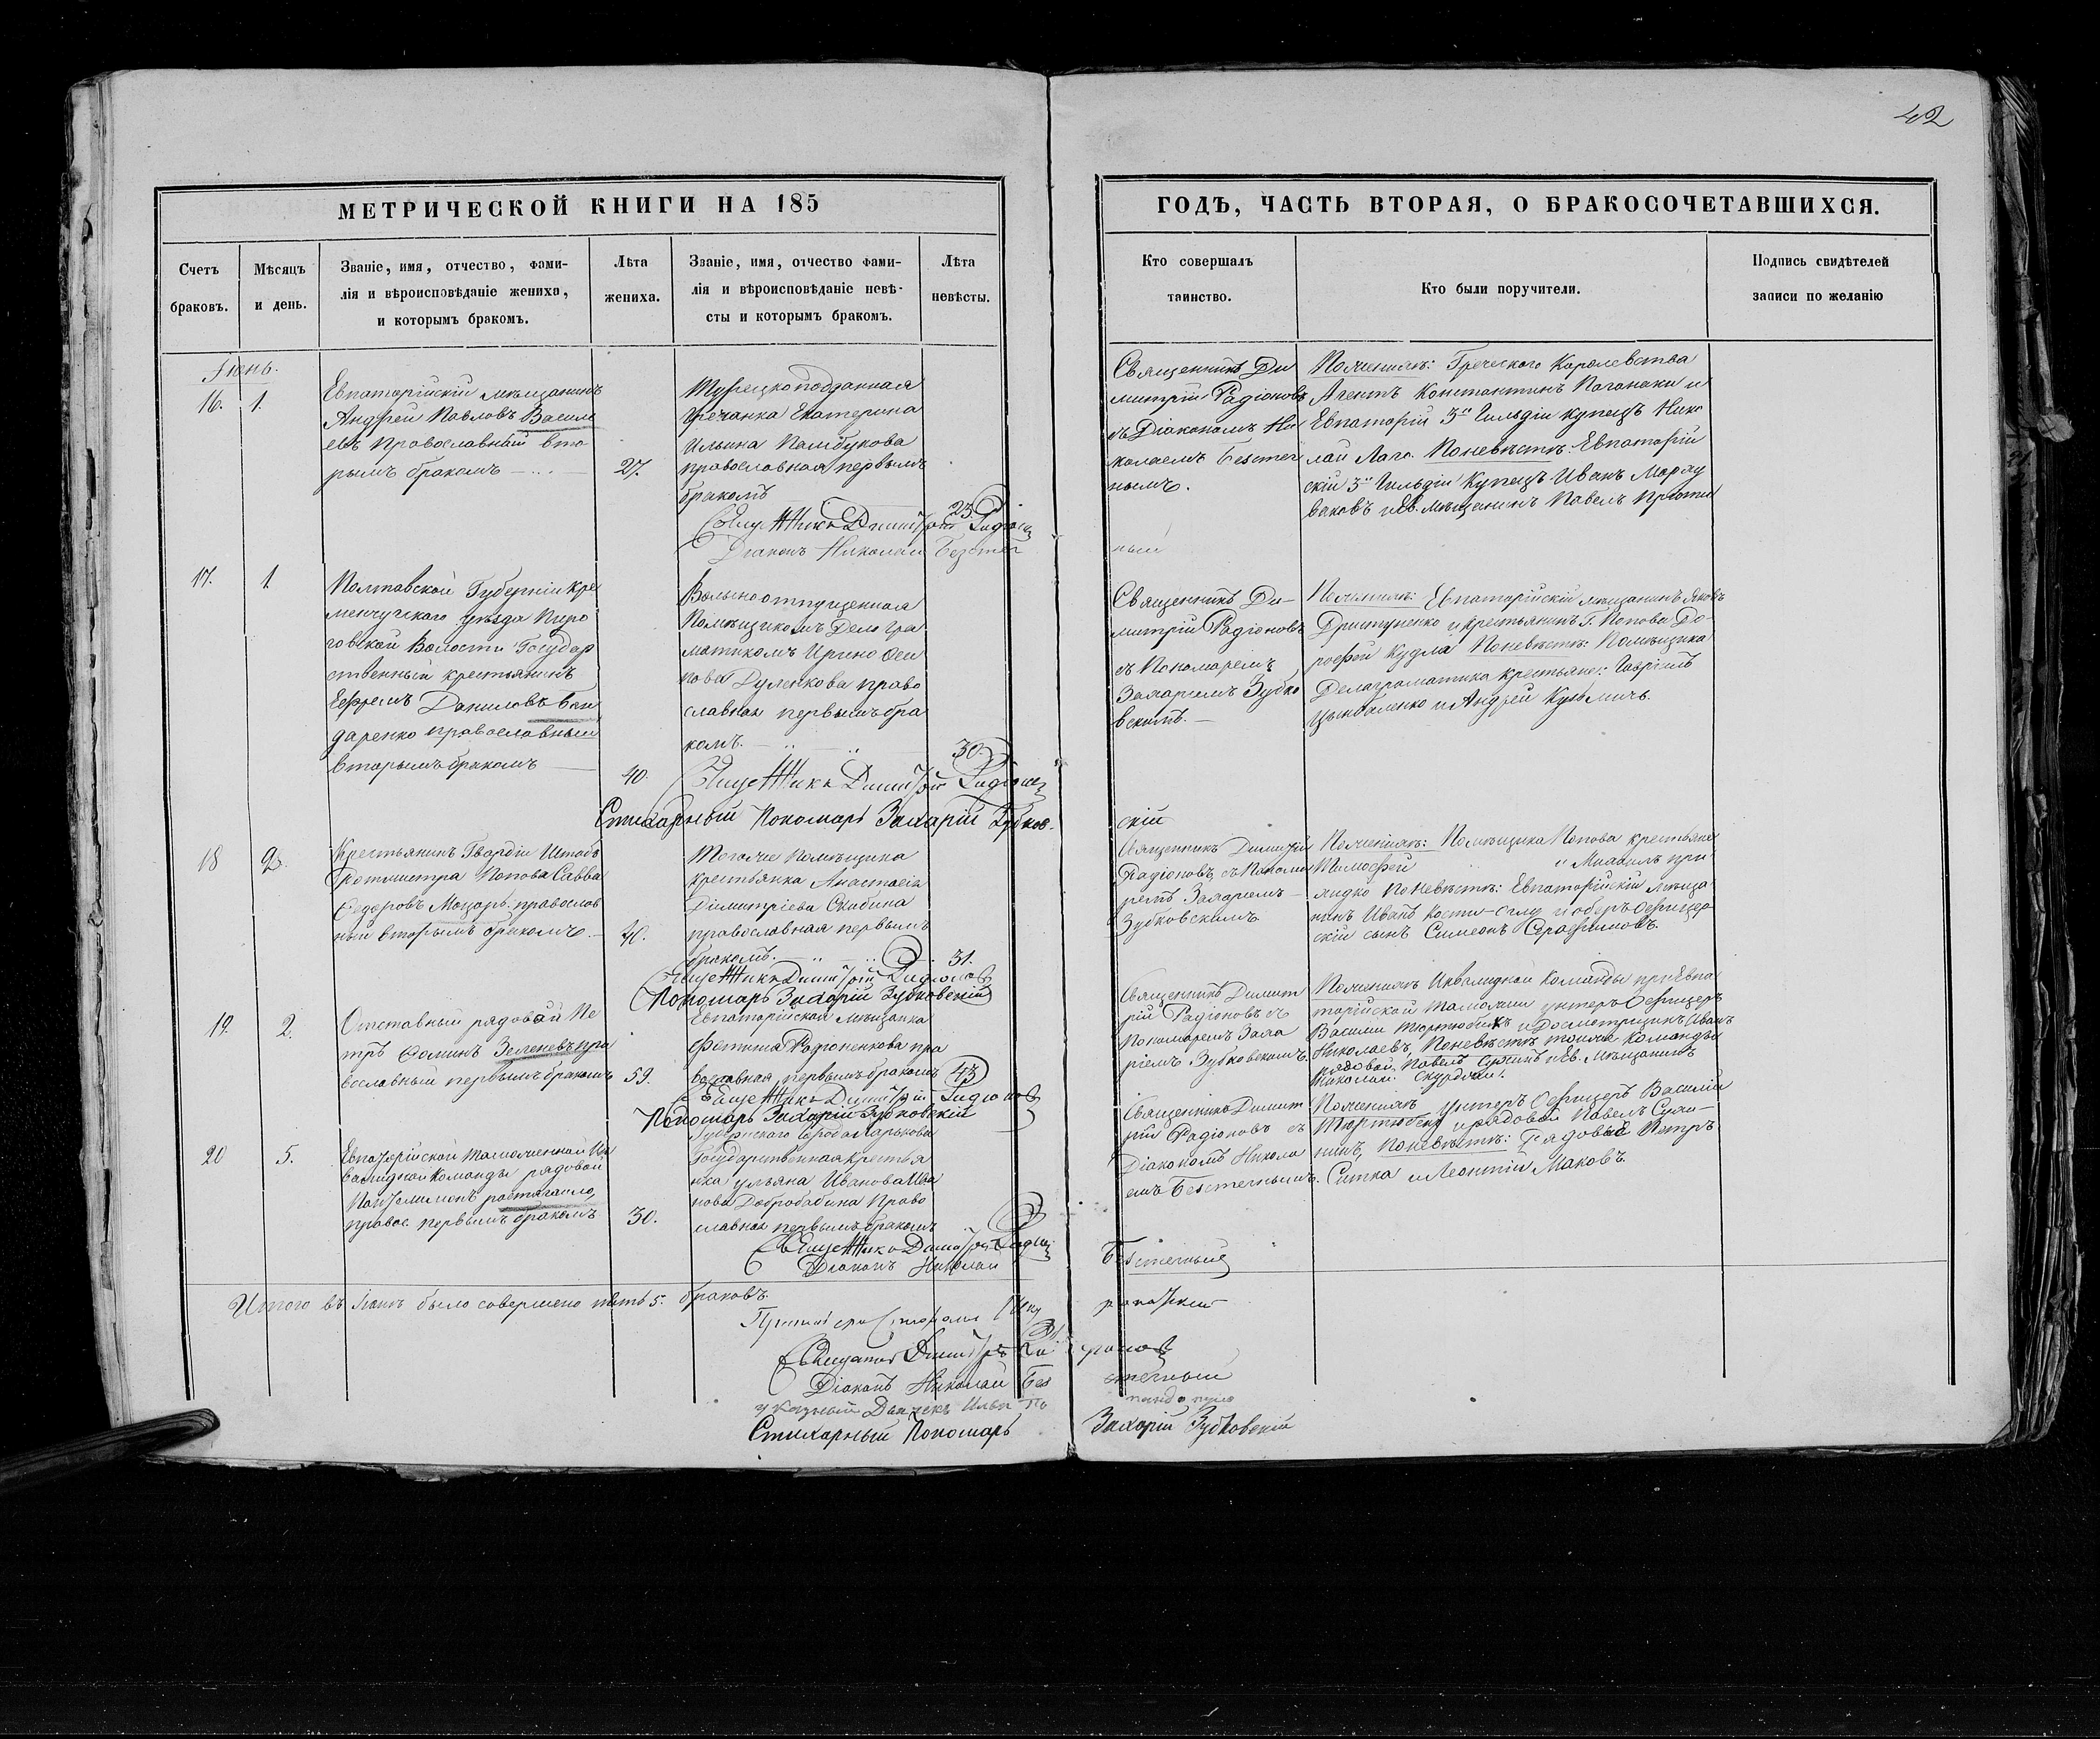 42
МЕТРИЧЕСКОЙ КНИГИ НА 185
ГОДЪ, ЧАСТЬ ВТОРАЯ, О БРАКОСОЧЕТАВШИХСЯ.
Счетъ
браковъ.
Мѣсяцъ
и день.
Званіе, имя, отчество, фами-
лія и вѣроисповѣданіе жениха,
и которымъ бракомъ.
Лѣта
жениха.
Званіе, имя, отчество фами-
лія и вѣроисповѣданіе невѣ-
сты и которымъ бракомъ.
Лѣта
невѣсты.
Кто совершалъ
таинство.
Кто были поручители.
Подпись свидѣтелей
записи по желанію
Іюнь.
16. 1.
Евпаторійскій мѣщанинъ
Андрей Павловъ Василь
евъ православный вто
рымъ бракомъ
27.
Турецкоподданная
гречанка Екатерина
Ильина Памбукова
православная первымъ
бракомъ
23
Священникъ Ди
митрій Радіоновъ
съ Діакономъ Ни
колаемъ Безстеч
нымъ.
По женихѣ: Греческаго Королевства
Агентъ Константинъ Паганаки и
Евпаторій 3й Гильдіи купецъ Нико
лай Лаго. По невѣстѣ: Евпаторій
скій 3й Гильдіи Купецъ Иванъ
и Ев. мѣщанинъ Павелъ
Діаконъ Николай Безстеч
ный
17. 1.
Полтавской Губерніи Кре
менчугскаго уѣзда Пиро
говской Волости Государ
ственный крестьянинъ
Ефремъ Даниловъ Бон
даренко православный
вторымъ бракомъ
40.
Вольноотпущенная
Помѣщикомъ Дела Гра
матикомъ Ирина Оси
пова Дуленкова право
славная первымъ бра
комъ.
30
Священникъ Ди-
митрій Радіоновъ
съ Пономаремъ
Захаріемъ Зубко
вскимъ.
По женихѣ: Евпаторійскій мѣщанинъ Яковъ
и крестьянинъ Г. Попова До-
рофей Кудла По невѣстѣ: Помѣщика
Делаграматика крестьяне: Гавріилъ
Цымбаленко и Андрей Кузьмичъ.
Стихарный Пономарь Захарій Зубков-
скій
18 2.
Крестьянинъ Гвардіи Штабъ
Ротмистра Попова Савва
Федоровъ Моцарь православ
ный вторымъ бракомъ.
40.
Тогоже Помѣщика
крестьянка Анастасія
Димитріева Скибина
православная первымъ
бракомъ.
31.
Священникъ Димитрій
Радіоновъ съ Понома
ремъ Захаріемъ
Зубковскимъ
По женихѣ: Помѣщика Попова крестьяне
Тимофей и Михаилъ При
ходко По невѣстѣ: Евпаторійскій мѣща
нинъ Иванъ и оберъ Офицер
скій сынъ Симеонъ Серафимовъ.
Пономарь Захарій Зубковскій
19. 2.
Отставный рядовой Пе
тръ Фоминъ Зеленевъ пра
вославный первымъ бракомъ
59.
Евпаторійская Мѣщанка
Фотина Радіоненкова пра
вославная первымъ бракомъ
43
Священникъ Димит
рій Радіоновъ съ
Пономаремъ Заха
ріемъ Зубковскимъ.
По женихѣ Инвалидной Команды при Евпа
торійской таможни унтеръ Офицеръ
Василій Тюртюбекъ и Досмотрщикъ Иванъ
Николаевъ, По невѣстѣ тойже Команды
рядовой Павелъ и Ев. мѣщанинъ
Николай
Пономарь Захарій Зубковскій
20 5.
Евпаторійской таможенной Ин
валидной Команды рядовой
Пантелимонъ
правос первымъ бракомъ
30.
Губернскаго города Харькова
Государственная крестья
нка Ульяна Иванова Ива
нова Добробабина Право
славная первымъ бракомъ
Священникъ Димит
рій Радіоновъ съ
Діакономъ Никола
емъ Безстечнымъ.
По женихѣ унтеръ Офицеръ Василій
Тюртюбекъ и рядовой Павелъ
По невѣстѣ: Рядовые Петръ
Ситка и Леонтій Маковъ.
Діаконъ Николай
Безстечный
Итого въ Іюнѣ было совершено пять 5. браковъ.
Діаконъ Николай Без
стечный
указный Дьячекъ Илья
Стихарный Пономарь Захарій Зубковскій